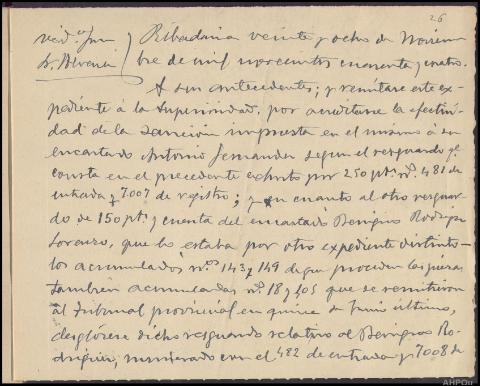 26
Ribadavia veinte y ocho de Noviem
bre de mil novecientos cuarenta y cuatro.
A sus antecedentes; y remítase este ex-
pediente á la Superioridad, por acreditarse la efectivi-
dad de la sanción impuesta en el mismo á su
encartado Antonio Fernandez segun el resguardo qe
consta en el precedente exhorto por 250 pts nº. 481 de
entrada y 7.007 de registro; y en cuanto al otro resguar-
do de 150 pts y cuenta del encartado Benigno Rodrigz
Lorenzo, que lo estaba por otro expediente distinto
los acumulados nºs 143 y 149 de que proceden las piezas
tambien acumuladas nº. 18 y 405 que se remitieron
al Tribunal provincial en quince de Junio último,
desglósese dicho resguardo relativo al Benigno Ro-
driguez, numerado con el 482 de entrada y 7008 de
AHPOu